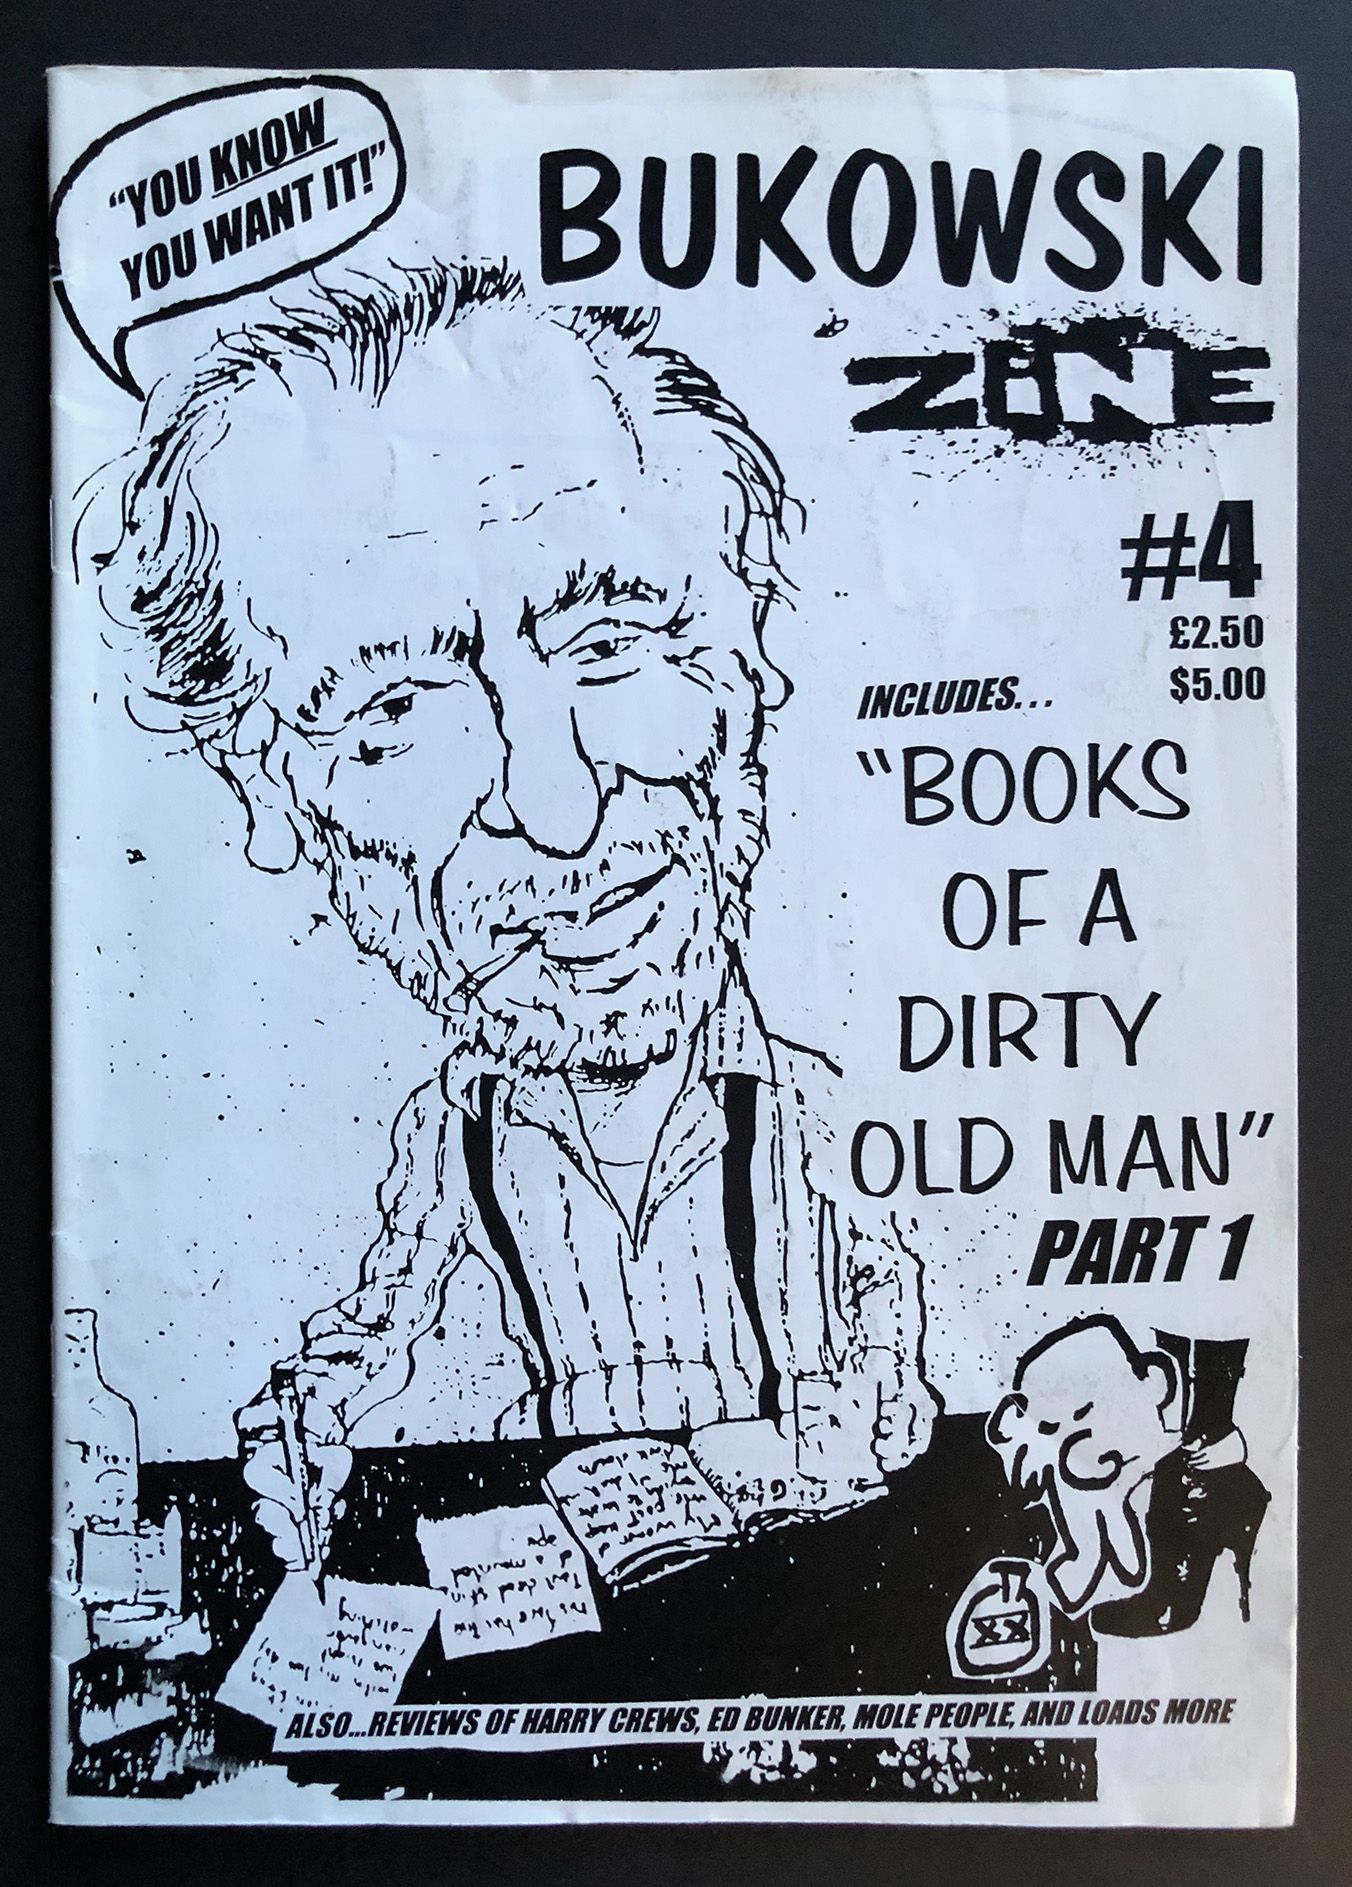 "YOU KNOW
YOU WANT IT!"
BUKOWSKI
ZINE
#4
£2.50
$5.00
INCLUDES...
"BOOKS
OF A
DIRTY
OLD MAN"
PART 1
XX
ALSO...REVIEWS OF HARRY CREWS, ED BUNKER, MOLE PEOPLE, AND LOADS MORE